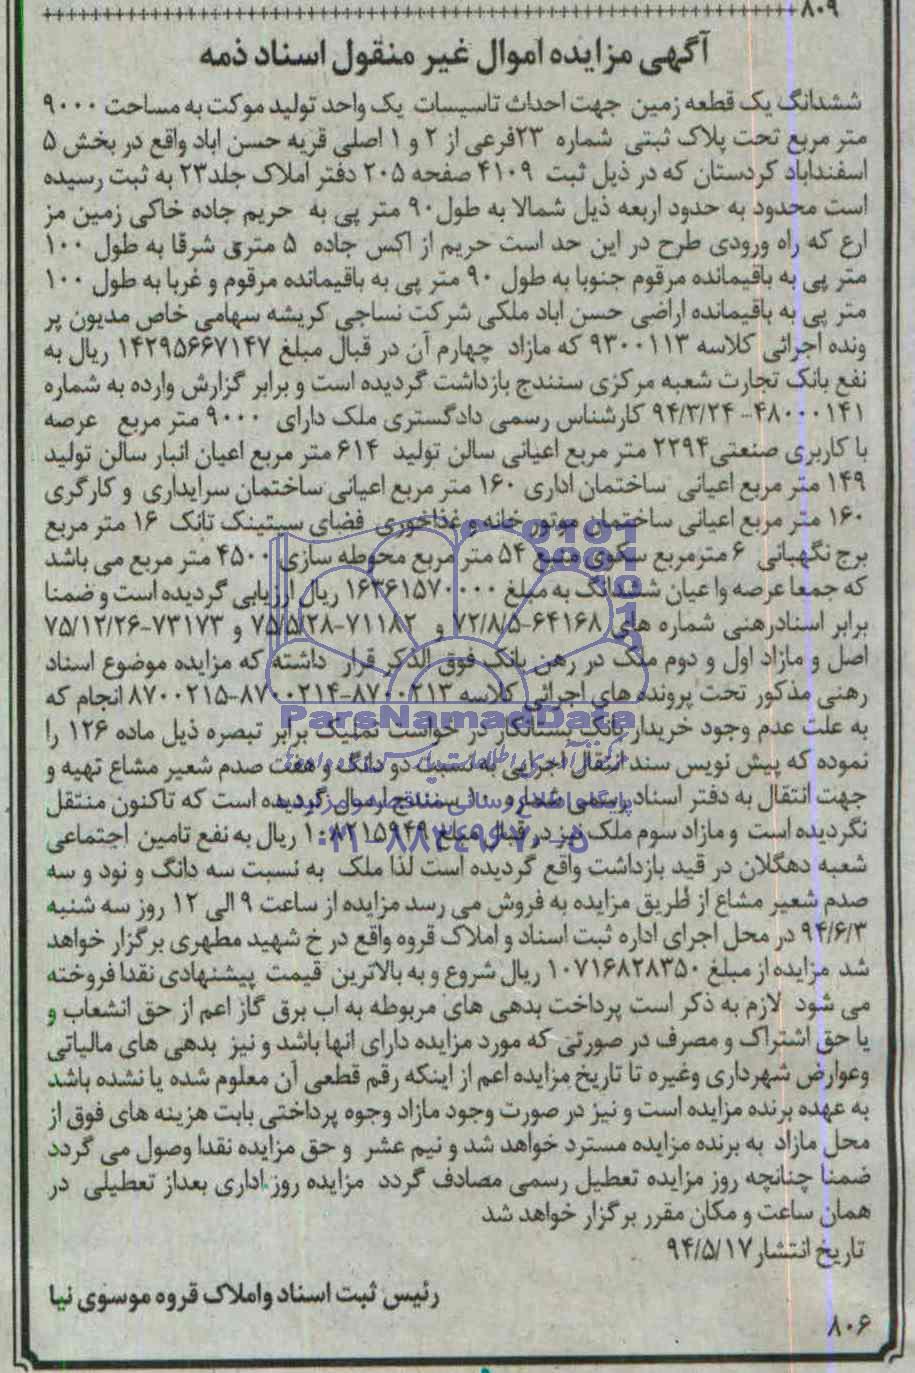 ۸۰۹
آگهی مزایده اموال غیر منقول اسناد ذمه
ششدانگ یک قطعه زمین جهت احداث تاسیسات یک واحد تولید موکت به مساحت ۹۰۰۰
متر مربع تحت پلاک ثبتی شماره ۲۳فرعی از ۲ و ۱ اصلی قریه حسن اباد واقع در بخش ۵
اسفنداباد کردستان که در ذیل ثبت ۴۱۰۹ صفحه ۲۰۵ دفتر املاک جلد۲۳ به ثبت رسیده
است محدود به حدود اربعه ذیل شمالا به طول۹۰ متر پی به حریم جاده خاکی زمین مز
ارع که راه ورودی طرح در این حد است حریم از اکس جاده ۵ متری شرقا به طول ۱۰۰
متر پی به باقیمانده مرقوم جنوبا به طول ۹۰ متر پی به باقیمانده مرقوم و غربا به طول ۱۰۰
متر پی به باقیمانده اراضی حسن اباد ملکی شرکت نساجی کریشه سهامی خاص مدیون پر
ونده اجرائی کلاسه ۹۳۰۰۱۱۳ که مازاد چهارم آن در قبال مبلغ ۱۴۲۹۵۶۶۷۱۴۷ ریال به
نفع بانک تجارت شعبه مرکزی سنندج بازداشت گردیده است و برابر گزارش وارده به شماره
۴۸۰۰۰۱۴۱-۹۴/۳/۲۴ کارشناس رسمی دادگستری ملک دارای ۹۰۰۰ متر مربع عرصه
با کاربری صنعتی۲۲۹۴ متر مربع اعیانی سالن تولید ۶۱۴ متر مربع اعیان انبار سالن تولید
۱۴۹ متر مربع اعیانی ساختمان اداری ۱۶۰ متر مربع اعیانی ساختمان سرایداری و کارگری
۱۶۰ متر مربع اعیانی ساختمان موتور خانه و غذاخوری فضای سپتینک تانک ۱۶ متر مربع
برج نگهبانی ۶ مترمربع سکوی منبع ۵۴ متر مربع محوطه سازی ۴۵۰۰ متر مربع می باشد
که جمعا عرصه واعیان ششدانگ به مبلغ ۱۶۳۶۱۵۷۰۰۰۰ ریال ارزیابی گردیده است و ضمنا
برابر اسنادرهنی شماره های ۶۴۱۶۸-۷۲/۸/۵ و ۷۱۱۸۲-۷۵/۵/۲۸ و ۷۳۱۷۳-۷۵/۱۲/۲۶
اصل و مازاد اول و دوم ملک در رهن بانک فوق الذکر قرار داشته که مزایده موضوع اسناد
رهنی مذکور تحت پرونده های اجرائی کلاسه ۸۷۰۰۲۱۳-۸۷۰۰۲۱۴-۸۷۰۰۲۱۵ انجام که
به علت عدم وجود خریدار بانک بستانکار در خواست تملیک برابر تبصره ذیل ماده ۱۲۶ را
نموده که پیش نویس سند انتقال اجرایی به نسبت دو دانگ و هفت صدم شعیر مشاع تهیه و
جهت انتقال به دفتر اسناد رسمی شماره ۱۰ سنندج ارسال گردیده است که تاکنون منتقل
نگردیده است و مازاد سوم ملک نیز در قبال مبلغ ریال به نفع تامین اجتماعی
شعبه دهگلان در قید بازداشت واقع گردیده است لذا ملک به نسبت سه دانگ و نود و سه
صدم شعیر مشاع از طریق مزایده به فروش می رسد مزایده از ساعت ۹ الی ۱۲ روز سه شنبه
۹۴/۶/۳ در محل اجرای اداره ثبت اسناد و املاک قروه واقع در خ شهید مطهری برگزار خواهد
شد مزایده از مبلغ ۱۰۷۱۶۸۲۸۳۵۰ ریال شروع و به بالاترین قیمت پیشنهادی نقدا فروخته
می شود لازم به ذکر است پرداخت بدهی های مربوطه به اب برق گاز اعم از حق انشعاب و
یا حق اشتراک و مصرف در صورتی که مورد مزایده دارای انها باشد و نیز بدهی های مالیاتی
وعوارض شهرداری وغیره تا تاریخ مزایده اعم از اینکه رقم قطعی آن معلوم شده یا نشده باشد
به عهده برنده مزایده است و نیز در صورت وجود مازاد وجوه پرداختی بابت هزینه های فوق از
محل مازاد به برنده مزایده مسترد خواهد شد و نیم عشر و حق مزایده نقدا وصول می گردد
ضمنا چنانچه روز مزایده تعطیل رسمی مصادف گردد مزایده روز اداری بعداز تعطیلی در
همان ساعت و مکان مقرر برگزار خواهد شد
تاریخ انتشار۹۴/۵/۱۷
رئیس ثبت اسناد واملاک قروه موسوی نیا
۸۰۶
ParsNamadData
پایگاه اطلاع رسانی مناقصه و مزایده
۰۲۱-۸۸۳۴۹۶۷۰-۵